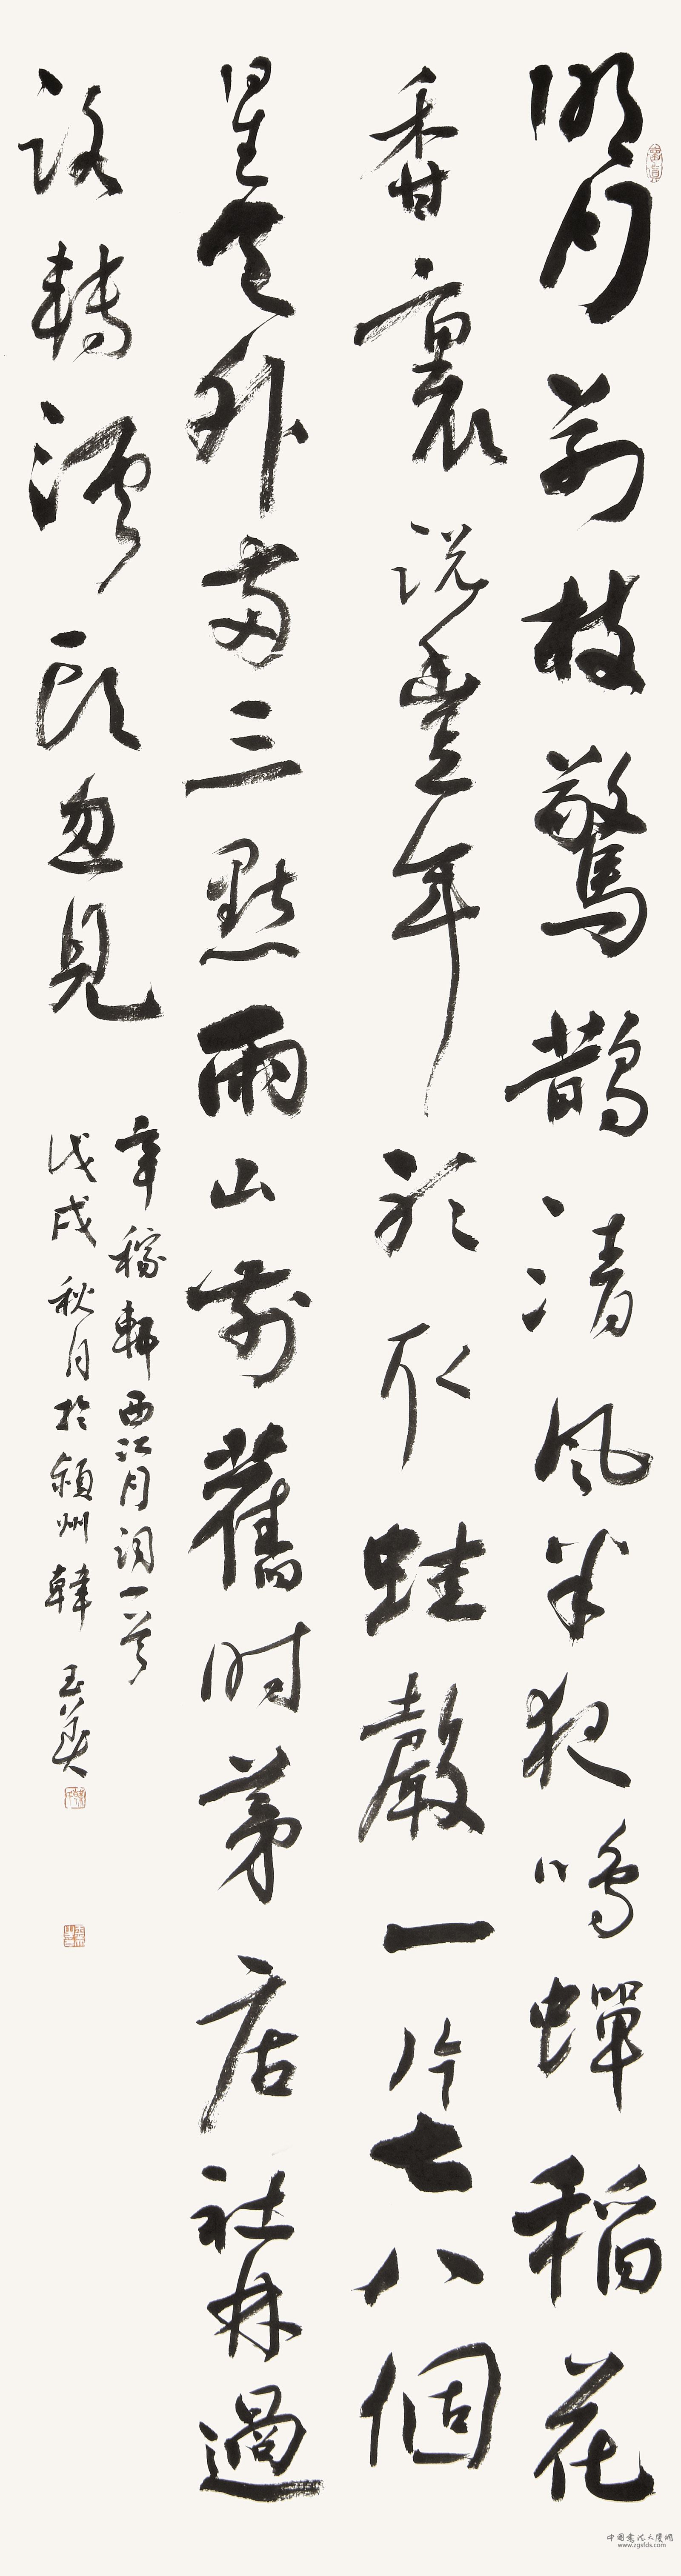 明月別枝驚鵲清風半夜鳴蟬稻花
香裏說豐年聽取蛙聲一片七八個
星天外兩三點雨山前舊時茅店社林過
路轉溪頭忽見
辛稼軒西江月詞一首
戊戌秋月於潁州韓玉
www.zgsfds.com